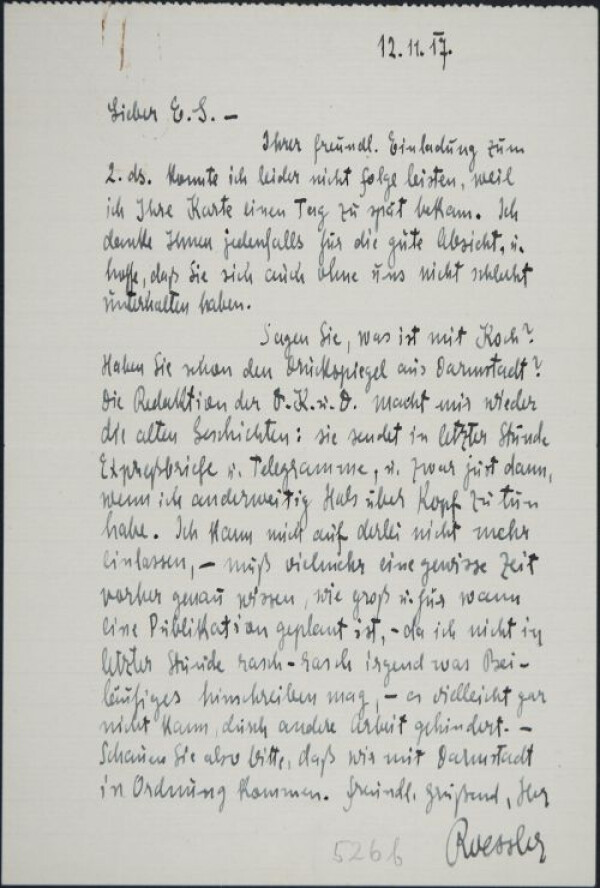 12.11.17.
Lieber E. S. –
Ihrer freundl. Einladung zum
2. ds. konnte ich leider nicht folge leisten, weil
ich Ihre Karte einen Tag zu spät bekam. Ich
danke Ihnen jedenfalls für die gute Absicht, u.
hoffe, daß Sie sich auch ohne uns nicht schlecht
unterhalten haben.
Sagen Sie, was ist mit Koch?
Haben Sie schon den Druckspiegel aus Darmstadt?
Die Redaktion der D.K.u.D. macht mir wieder
die alten Geschichten: sie sendet in letzter Stunde
Expreßbriefe u. Telegramme, u. zwar just dann,
wenn ich anderweitig Hals über Kopf zu tun
habe. Ich kann mich auf derlei nicht mehr
einlassen, – muß vielmehr eine gewisse Zeit
vorher genau wissen, wie groß u. für wann
eine Publikation geplant ist, – da ich nicht in
letzter Stunde rasch-rasch irgend was Bei-
läufiges hinschreiben mag, – es vielleicht gar
nicht kann, durch andere Arbeit gehindert. –
Schauen Sie also bitte, daß wir mit Darmstadt
in Ordnung kommen. freundl. grüßend, Ihr
Roessler
526b